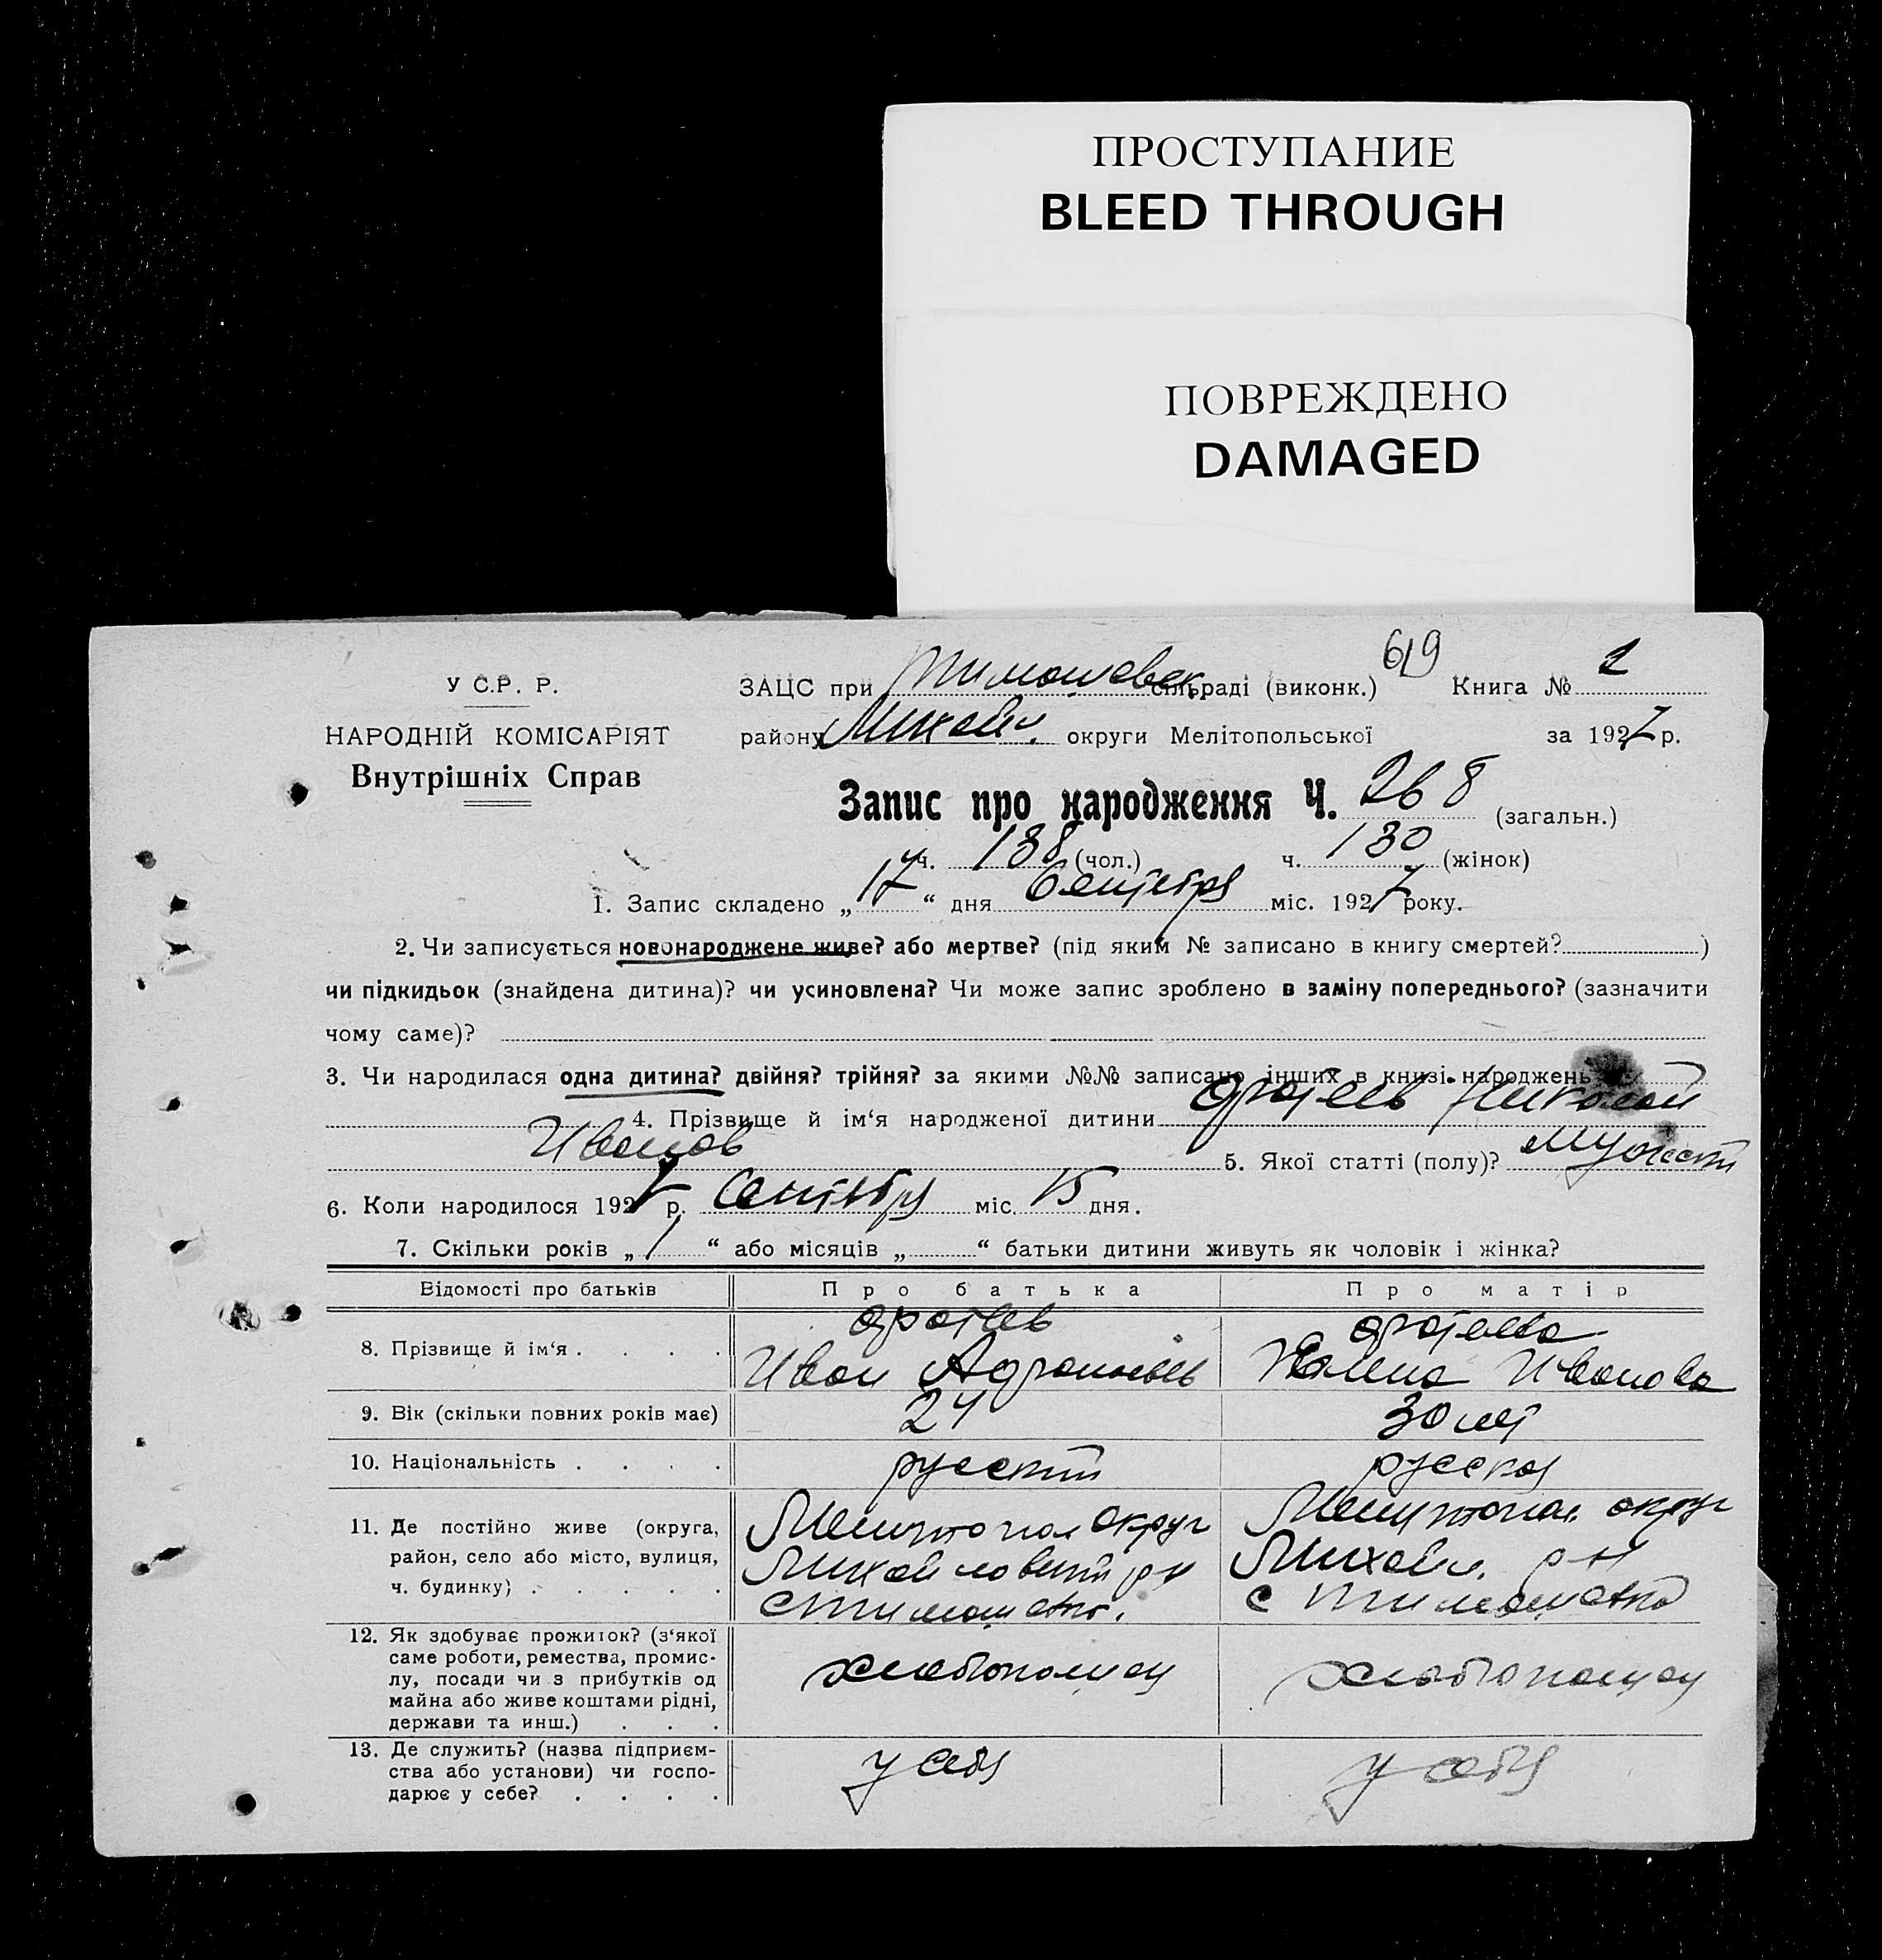 ПРОСТУПАНИЕ
BLEED THROUGH
ПОВРЕЖДЕНО
DAMAGED
619
У С.Р. Р.
ЗАЦС при Тимошевск сільраді (виконк.) Книга №
НАРОДНІЙ КОМІСАРІЯТ
району Михайл. округи Мелітопольської за 1927 р.
Внутрішніх Справ
Запис про народження Ч. 268 (загальн.)
ч. 138 (чол.) ч. 130 (жінок)
1. Запис складено „17“ дня Сентября міс. 1927 року.
2. Чи записується новонароджене живе? або мертве? (під яким № записано в книгу смертей? )
чи підкидьок (знайдена дитина)? чи усиновлена? Чи може запис зроблено в заміну попереднього? (зазначити
чому саме)?
3. Чи народилася одна дитина? двійня? трійня? за якими №№ записано інших в книзі народжень
4. Прізвище й ім‘я народженої дитини Фотеев Николай
Иванов 5. Якої статті (полу)? мужеск
6. Коли народилося 1927 р. Сентября міс. 15 дня.
7. Скільки років „1“ або місяців „ “ батьки дитини живуть як чоловік і жінка?
Відомості про батьків Про батька Про матір
8. Прізвище й ім‘я . . . .
Иван
Иванова
9. Вік (скільки повних років має) 24 30 лет
10. Національність . . . . русский русская
11. Де постійно живе (округа,
район, село або місто, вулиця,
ч. будинку) . . . . .
Мелитопол округ
Михайловский р-н
с Тимошевк.
Мелитопол. округ
Михайл. р-н
с Тимошевка
12. Як здобуває прожиток? (з‘якої
саме роботи, ремества, промис-
лу, посади чи з прибутків од
майна або живе коштами рідні,
держави та инш.) . . .
хлебопашец
хлебопашец
13. Де служить? (назва підприєм-
ства або установи) чи госпо-
дарює у себе? . . . .
у себя
у себя